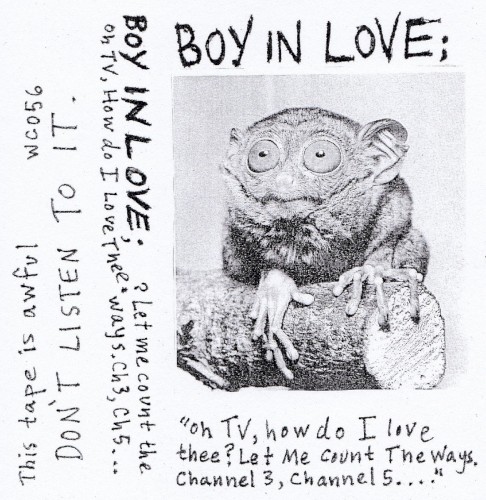 This tape is awful WC056
DON'T LISTEN TO IT.
BOY IN LOVE; ? Let me count the
Oh TV, How do I Love, Thee ways. Ch3, Ch5...
BOY IN LOVE;
"Oh TV, how do I love
thee? Let Me Count The Ways.
Channel 3, Channel 5...."